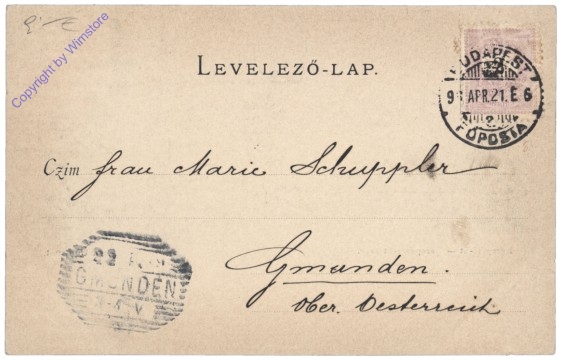 Copyright by Wimstore
LEVELEZŐ-LAP.
BUDAPEST
APR. 21. É 6
FŐPOSTA
Czim Frau Marie Schuppler
Gmunden.
Ober. Oesterreich
22
GMUNDEN